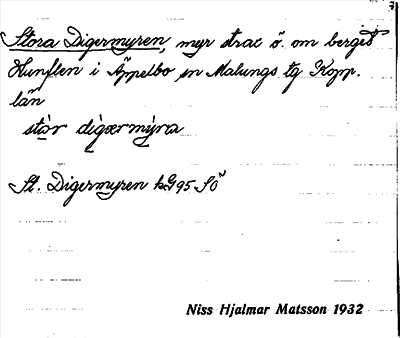 Stora Digermyren, myr strax ö. om berget
Hunflen i Äppelbo sn Malungs tg Kopp.
län
stòr dìgærmýra
St. Digermyren kG 95 SÖ
Niss Hjalmar Matsson 1932